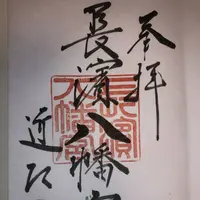 奉拝
長濱八幡宮
近江